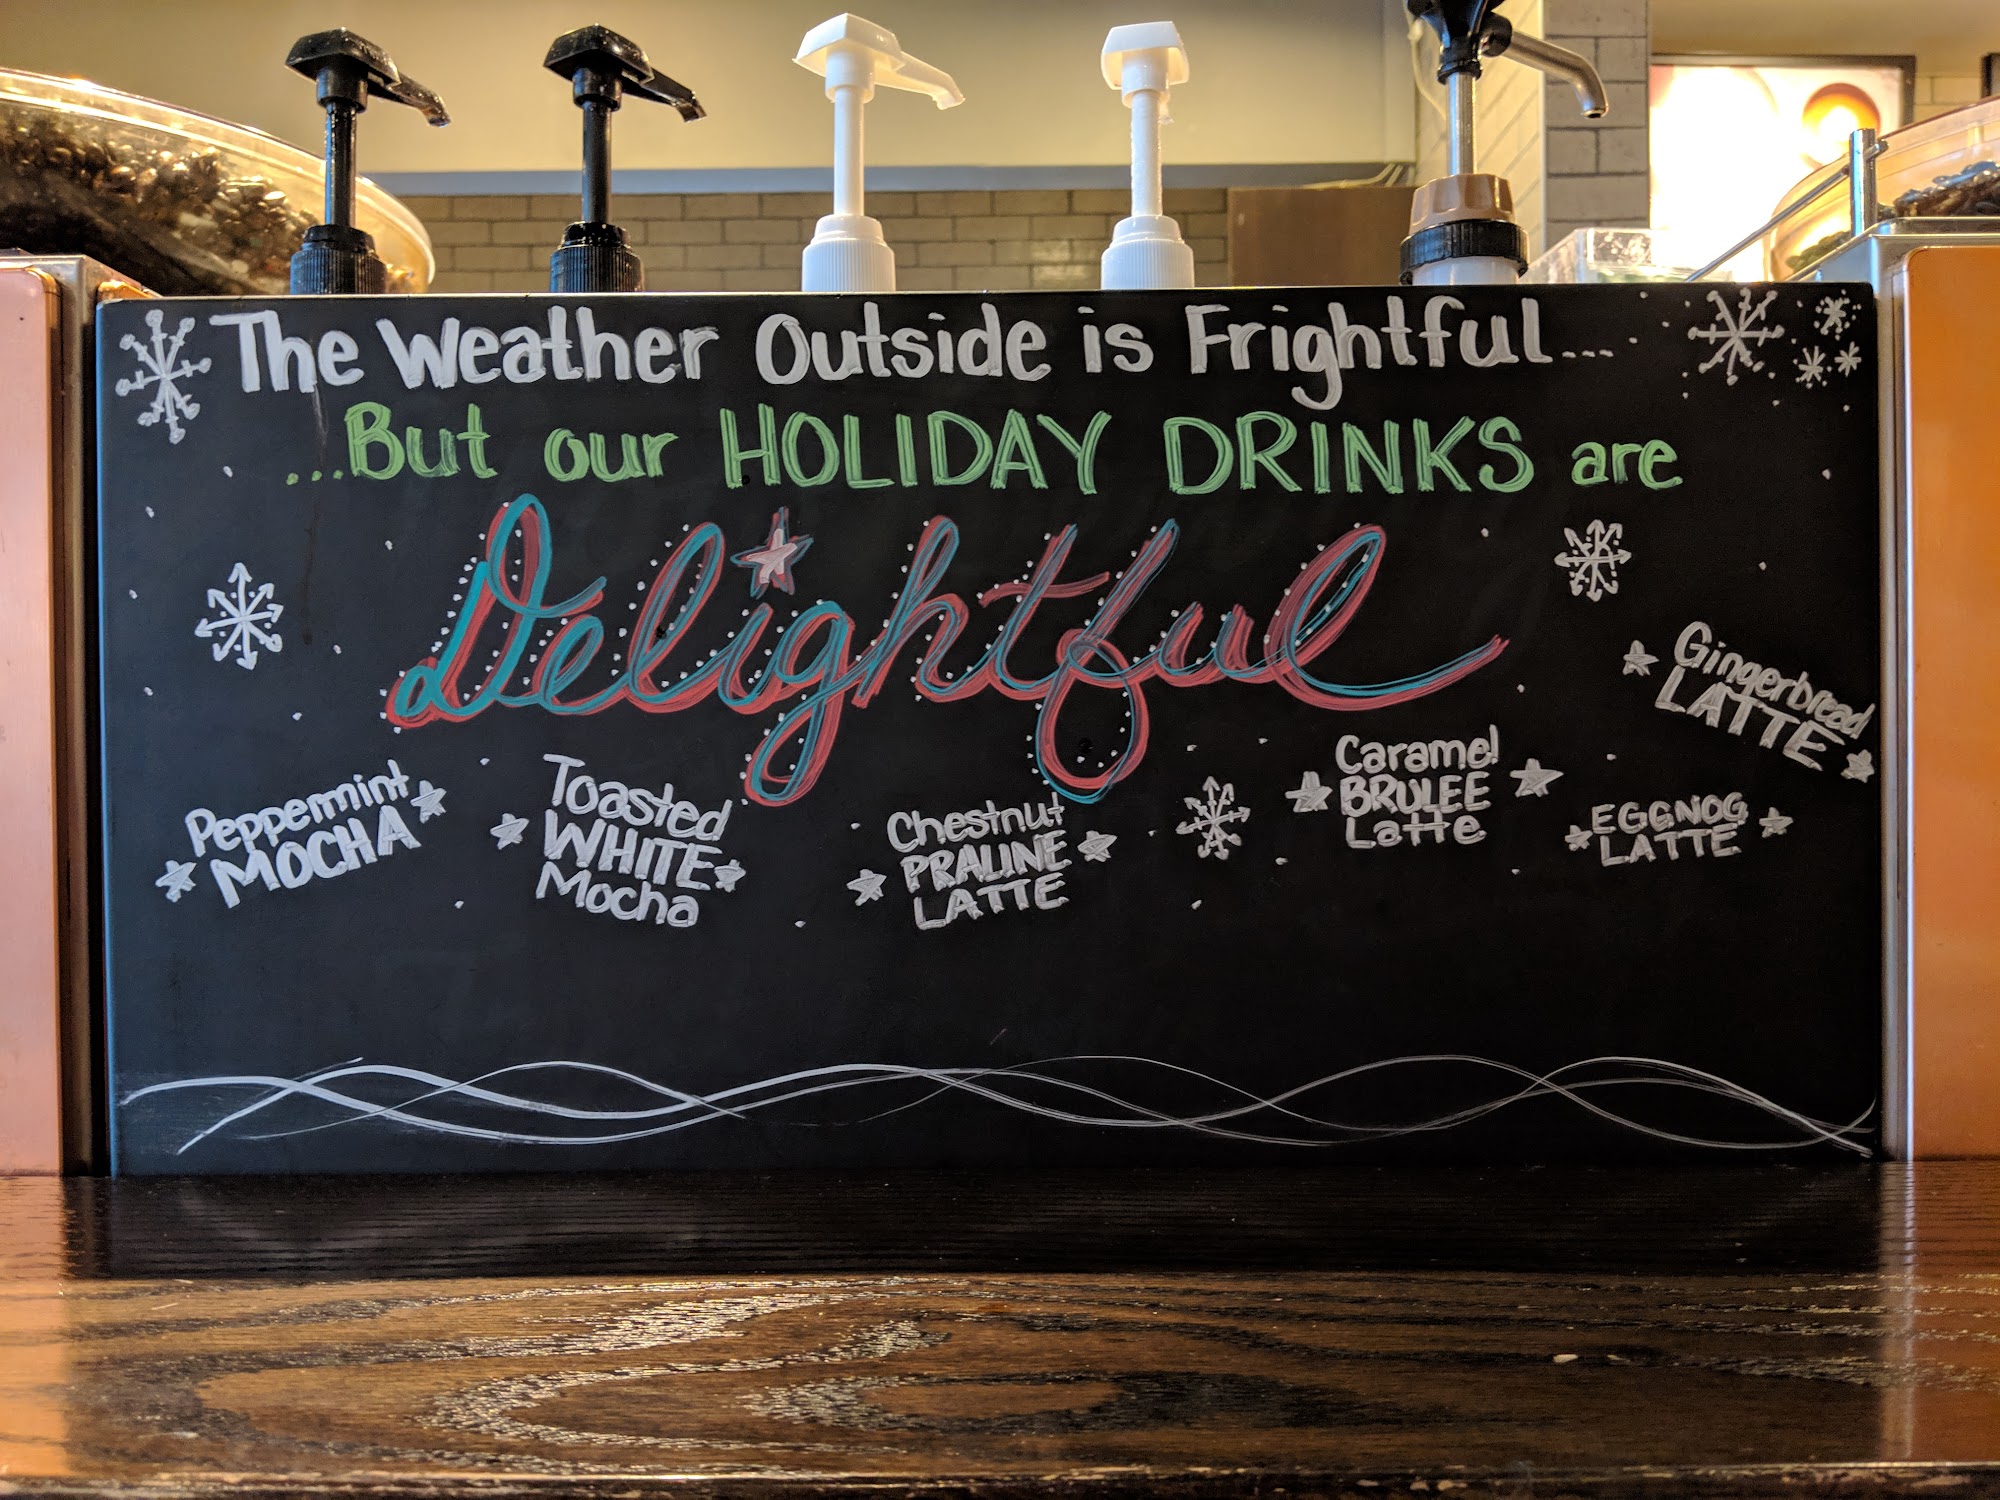 The Weather Outside is Frightful...
...But our HOLIDAY DRINKS are
Delightful
Peppermint
MOCHA
Toasted
WHITE
Mocha
Chestnut
PRALINE
LATTE
Caramel
BRULEE
Latte
EGGNOG
LATTE
Gingerbread
LATTE